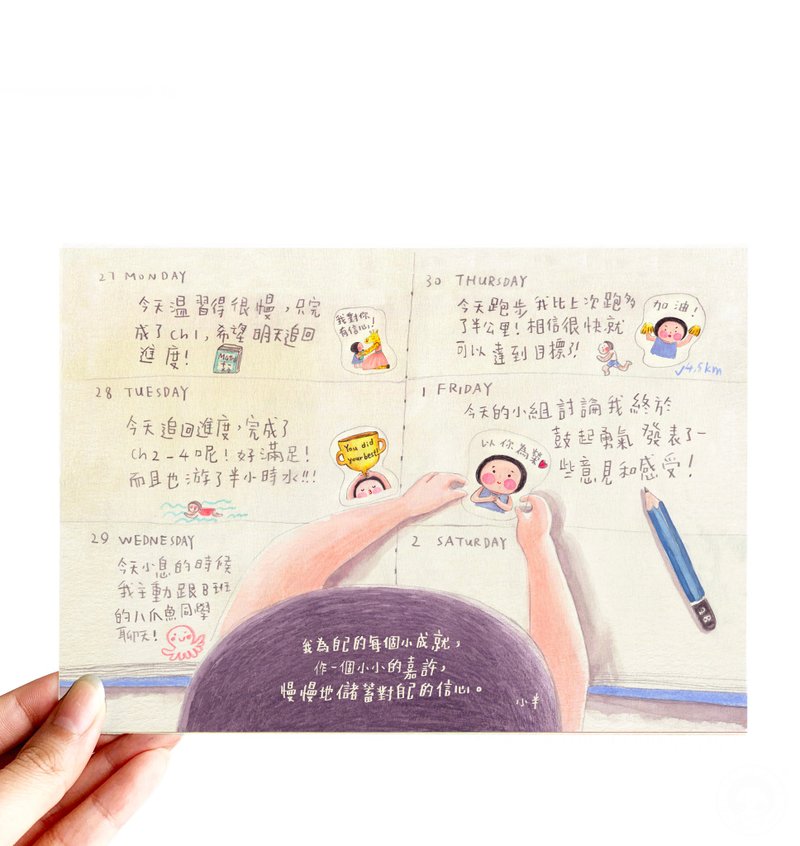 27 MONDAY
今天溫習得很慢，只完
成了Ch1，希望明天追回
進度！
MATH
我對你
有信心！
28 TUESDAY
今天追回進度，完成了
Ch2-4呢！好滿足！
而且也游了半小時水!!!
You did
your best!
29 WEDNESDAY
今天小息的時候
我主動跟B班
的八爪魚同學
聊天！
30 THURSDAY
今天跑步我比上次跑多
了半公里！相信很快就
可以達到目標了!
加油！
√4.5km
1 FRIDAY
今天的小組討論我終於
鼓起勇氣發表了一
些意見和感受！
以你為榮
2 SATURDAY
2B
我為自己的每個小成就，
作一個小小的嘉許，
慢慢地儲蓄對自己的信心。
小半